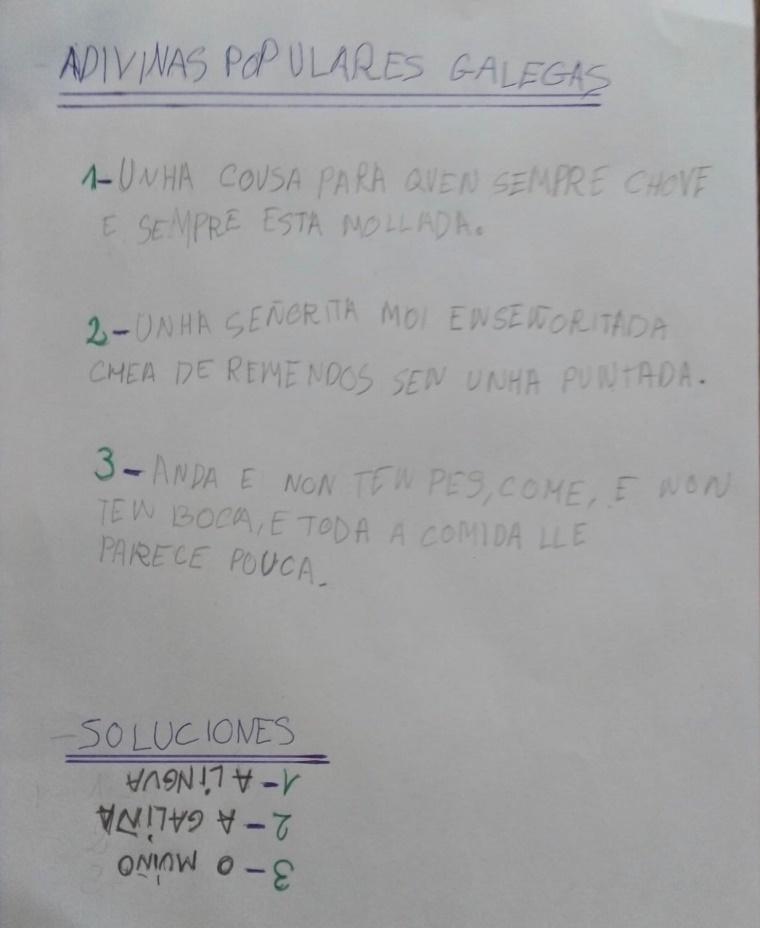 - ADIVINAS POPULARES GALEGAS
1- UNHA COUSA PARA QUEN SEMPRE CHOVE
E SEMPRE ESTA MOLLADA.
2- UNHA SEÑORITA MOI ENSEÑORITADA
CHEA DE REMENDOS SEN UNHA PUNTADA.
3- ANDA E NON TEN PES, COME, E NON
TEN BOCA, E TODA A COMIDA LLE
PARECE POUCA.
- SOLUCIONES
1- A LINGUA
2- A GALIÑA
3- O MUIÑO